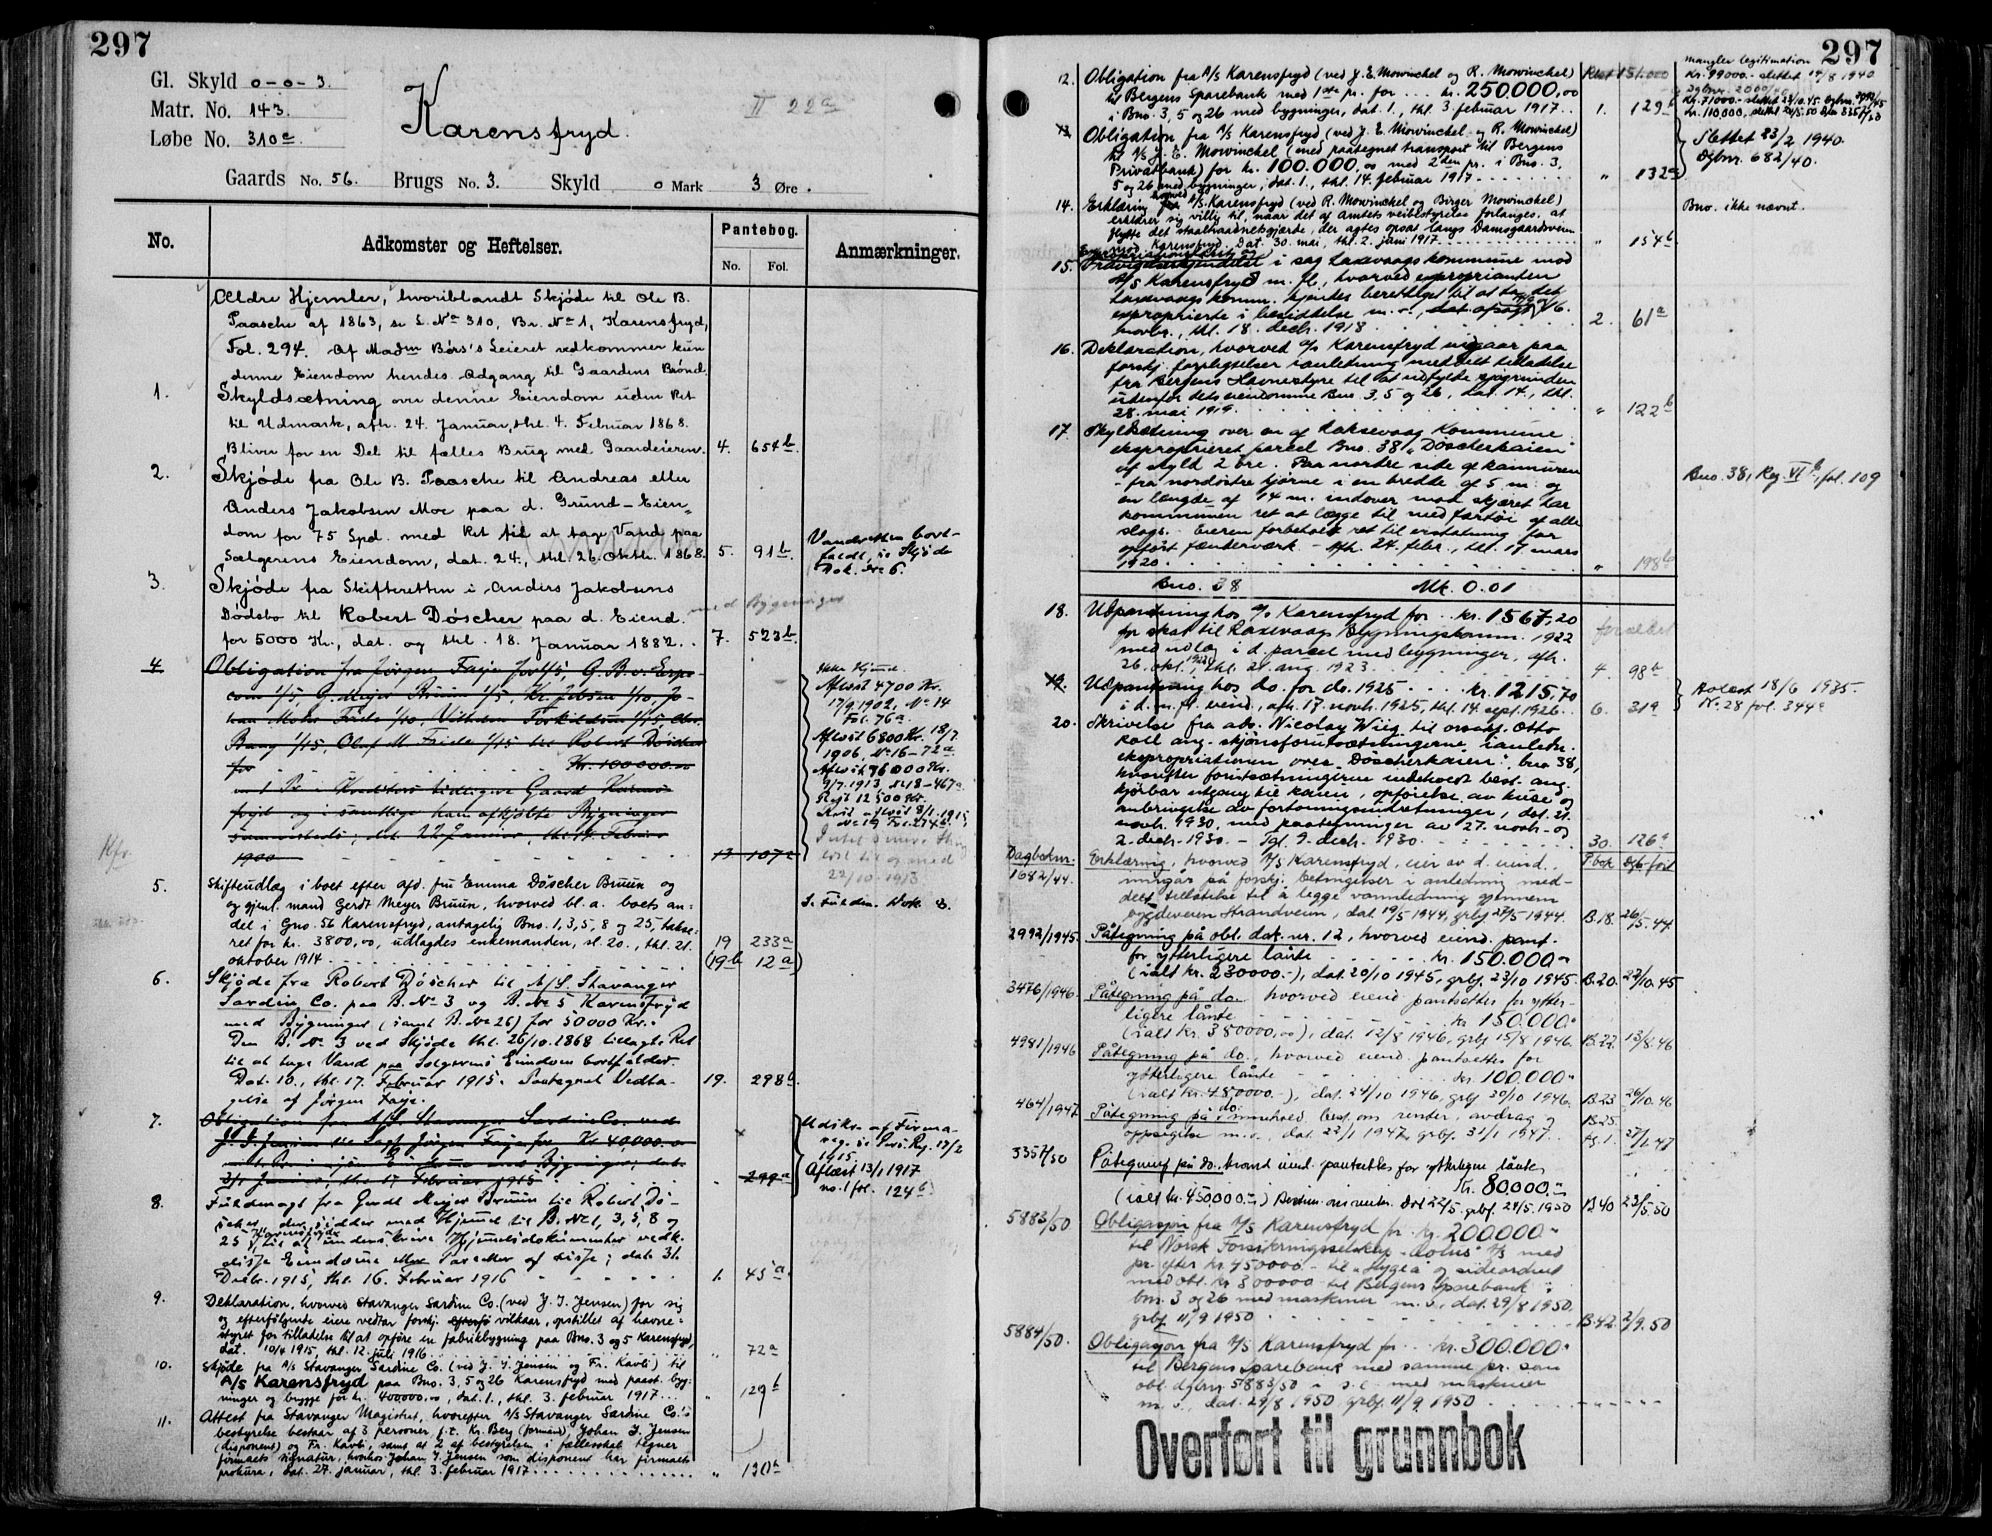 297
Gl. Skyld 0-0-3.
Matr. No. 143.
Løbe No. 310a.
Karensfryd.
II 22a
Gaards No. 56. Brugs No. 3. Skyld 0 Mark 3 Øre.
No. Adkomster og Heftelser. Pantebog. Anmærkninger.
No. Fol.
Ældre Hjemler, hvoriblandt Skjøde til Ole B.
Paasche af 1863, se L. No 310, Br. No 1, Karensfryd,
Fol. 294. Af Madm Børs's Leieret vedkommer kun
denne Eiendom hendes Adgang til Gaardens Brønd.
1. Skyldsætning over denne Eiendom uden Ret
til Udmark, afh. 24. Januar, thl. 4. Februar 1868.
Bliver for en Del til fælles Brug med Gaardeieren. 4. 654b.
2. Skjøde fra Ole B. Paasche til Andreas eller
Anders Jakobsen Moe paa d. Grund-Eien-
dom for 75 Spd. med Ret til at tage Vand paa
Sælgerens Eiendom, dat. 24., thl. 26. Oktbr. 1868. 5. 91b.
Vandretten bort-
faldt, se Skjøde
Dok. No 6.
3. Skjøde fra Skifteretten i Anders Jakobsens
Dødsbo til Robert Døscher paa d. Eiend. med Bygninger
for 5000 Kr., dat. og thl. 18. Januar 1882. 7. 523b.
4. Obligation fra Jørgen Faye for 1/5, G. B. v. Erpe-
com 1/5, G. Meyer Bruun 1/5, Kr. Jebsen 1/10, Jo-
han Mohr Friele 1/10, Vilhelm Torkildsen 1/15, Chr.
Bang 1/15, Olaf M. Friele 1/15 til Robert Døscher
for Kr. 100000.00
m. 1 Pr. i Kreditors tidligere Gaard Karens-
fryd og i samtlige ham afkjøbte Bygninger
sammesteds; dat. 22 Januar, thl. Februar
1900 13 107a
Ikke Hjemmel.
Aflæst 4700 Kr.
17/9 1902, No 14
Fol. 76a.
Aflæst 6800 Kr. 18/7
1906, No 16-72a
Aflæst 76000 Kr.
9/7 1913, No 18-467a.
Rest 12500 Kr.
Kvit. aflæst 8/1 1915,
No 19 Fol. 274b.
22/10-1913
5. Skifteudlæg i boet efter afd. fru Emma Døscher Bruun og
og gjenl. mand Gerdt Meyer Bruun, hvorved bl. a. boets an-
del i Gno. 56 Karensfryd, antagelig Bno. 1, 3, 5, 8 og 25, takse-
ret for kr. 3800,00, udlagdes enkemanden, sl. 20., thl. 21.
oktober 1914 19 233a
(19b 12a)
Se Fuldm. Dok. 8.
6. Skjøde fra Robert Døscher til A/S. Stavanger
Sardin Co. paa B. No 3 og B. No 5 Karensfryd
med Bygninger (samt B. No 26) for 50000 Kr..
Den B. No 3 ved Skjøde thl. 26/10. 1868 tillagte Ret
til at tage Vand paa Sælgerens Eiendom bortfalder.
Dat. 10., thl. 17. Februar 1915. Paategnet Vedta- 19. 298b.
gelse af Jørgen Faye.
7. Obligation fra A/S Stavanger Sardine Co. ved
J. J. Jensen til Sagf. Jørgen Faye for Kr 40,000.00
299a
Udskr. af Firma-
reg. se Pers. Reg. 17/2
1915.
Aflæst 13/1 1917
no. 1 fol. 124b.
8. Fuldmagt fra Gerdt Meyer Bruun til Robert Dø-
scher, der sidder med Hjemmel til B. No 1, 3, 5, 8 og
25 Karensfryd, til at underskrive Hjemmelsdokumenter vedk.
disse Eiendomme eller Parceller af disse; dat. 31.
Decbr. 1915, thl. 16. Februar 1916 1. 45a.
9. Deklaration, hvorved Stavanger Sardine Co. (ved J. J. Jensen) for sig
og efterfølgende eiere vedtar forskj. vilkaar, opstillet af havne-
styret for tilladelse til at opføre en fabrikbygning paa Bno. 3 og 5 Karensfryd,
dat. 10/4 1915, thl. 12. juli 1916. " 72a
10. Skjøde fra A/S Stavanger Sardine Co. (ved J. J. Jensen og Fr. Kavli) til
A/S Karensfryd paa Bno. 3, 5 og 26 Karensfryd med paast. byg-
ninger og brygge for kr. 400,000.00, dat. 1., thl. 3. februar 1917. " 129b
11. Attest fra Stavanger Magistrat, hvorefter A/S Stavanger Sardine Co.'s
bestyrelse bestaar af 3 personer, f. t. Kr. Berg (formand), Johan J. Jensen
(disponent) og Fr. Kavli, samt at 2 af bestyrelsen i fællesskab tegner
firmaets signatur, hvorhos Johan J. Jensen som disponent har firmaets
prokura, dat. 27. januar, thl. 3. februar 1917. " 130b
297
12. Obligation fra A/S Karensfryd (ved J. E. Mowinckel og R. Mowinckel)
til Bergens Sparebank med 1ste pr. for kr. 250.000,00
i Bno. 3, 5 og 26 med bygninger, dat. 1., thl. 3. februar 1917. 1. 129b
mangler legitimation
Kr. 99000.- slettet 19/8 1940
13. Obligation fra A/S Karensfryd (ved J. E. Mowinckel og R. Mowinckel)
til A/S J. E. Mowinckel (med paategnet transport til Bergens
Privatbank) for kr. 100.000,00 med 2den pr. i Bno. 3,
5 og 26 med bygninger, dat. 1., thl. 14. februar 1917 " 132a
Slettet 23/2 1940.
Dgbnr. 682/40.
14. Erklæring hvorved A/S. Karensfryd (ved R. Mowinckel og Birger Mowinckel)
erklærer sig villig til, naar det af amtets veibestyrelse forlanges, at
flytte det staaltraadnetsgjærde, der agtes opsat langs Damsgaardsveien
mod Karensfryd. Dat. 30. mai, thl. 2. juni 1917. " 154b
Bno. ikke nævnt.
15. i sag Laxevaags kommune mod
A/S Karensfryd m. fl., hvorved exproprianten
Laxevaags komm. kjendes berettiget til at ta det
exproprierte i besiddelse m. v.,
novbr., thl. 18. decbr. 1918 2. 61a
16. Deklaration, hvorved A/S Karensfryd indgaar paa
forskj. forpligtelser i anledning meddelt tilladelse
fra Bergens Havnestyre til at udfylde sjøgrunden
udenfor dets eiendomme Bno. 3, 5 og 26, dat. 14., thl.
28. mai 1919. " 122b
17. Skyldsætning over en af Laksevaag Kommune
eksproprieret parcel Bno. 38 "Døscherkaien"
af skyld 2 øre. Paa nordre side af kaimuren
- fra nordøstre hjørne i en bredde af 5 m. og
en længde af 14 m. indover mod skjæret har
kommunen ret at lægge til med fartøi af alle
slags. Eieren forbeholdt ret til erstatning for
opført fenderværk. - Afh. 24. febr., thl. 17 mars
1920. " 198b
Bno. 38, Reg. VI b, fol. 109
Bno. 38 Mk. 0.01
18. Udpantning hos A/S Karensfryd for kr. 1567,20
for skat til Laxevaags Bygningskomm. 1922
med udlæg i d. parcel med bygninger, afh.
26. okt. 1922, thl. 21. aug. 1923. 4. 98b
forældet
19. Udpantning hos do. for do. 1925 kr. 1215,70
i d. m. fl. eiend., afh. 17. novb. 1925, thl. 14. sept. 1926. 6. 31a
Avlæst 18/6 1935.
Nr. 28 fol. 344a
20. Skrivelse fra adv. Nicolay Wiig til orsakf. Otto
Koll ang. skjønsforutsætningerne i anledn.
ekspropriationen over "Døscherkaien", bno 38,
hvorefter forutsætningerne indeholdt best. ang.
kjørbar utgang til kaien, opførelse av huse og
anbringelse av fortøiningsindretninger, dat. 21.
novb. 1930, med paategninger av 27. novb. og
2. decb. 1930. - Tgl. 9. decb. 1930. 30. 126a
Dagboknr.
1682/44. Erklæring, hvorved A/S Karensfryd, eier av d. eiend.
inngår på forskj. betingelser i anledning med-
delt tillatelse til å legge vannledning gjennem
bygdeveien Strandveien, dat. 19/5 1944, grbf. 27/5 1944. B. 18. 26/5.44.
2992/1945. Påtegning på obl. dok. nr. 12, hvorved eiend. pant.
for ytterligere lånte kr. 150.000.-
(ialt kr. 230000.-), dat. 20/10 1945, grbf. 23/10 1945. B. 20. 22/10.45
3476/1946. Påtegning på do. hvorved eiend. pantsettes for ytter-
ligere lånte kr. 150.000.-
(ialt kr. 380000,00), dat. 12/8 1946, grbf. 15/8 1946. B. 22. 13/8.46
4981/1946 Påtegning på do., hvorved eiend. pantsettes for
ytterligere lånte kr. 100.000.-
(ialt kr. 480000.-), dat. 24/10 1946, grbf. 30/10 1946. B. 23 26/10.46
464/1947. Påtegning på do. innehold. best. om renter, avdrag og
oppsigelse m. v., dat. 22/1 1947, grbf. 31/1 1947. B. 25. 27/1.47
3357/50 Påtegning på do. hvorved eiend. pantsettes for ytterligere lånte
Kr. 80.000.-
(ialt kr. 450,000.-) Bestem. om renter. Dat 22/5. grbf. 24/5. 1950 B 40 23/5.50
5883/50 Obligasjon fra A/S Karensfryd for kr. 200000.-
til Norsk Forsikringsselskap "Æolus" A/S med
pr. efter kr. 450000.- til "Hygea" og sideordnet
med obl. kr 300000 til Bergens Sparebank i
bnr. 3 og 26 med maskiner m. v., dat. 29/8 1950.
grbf. 11/9 1950 B. 42. 2/9.50
5884/50. Obligasjon fra A/S Karensfryd for kr. 300.000.-
til Bergens Sparebank med samme pr. som
obl. dgbnr. 5883/50 med maskiner
m. v., dat. 29/8 1950, grbf. 11/9 1950
Overført til grunnbok